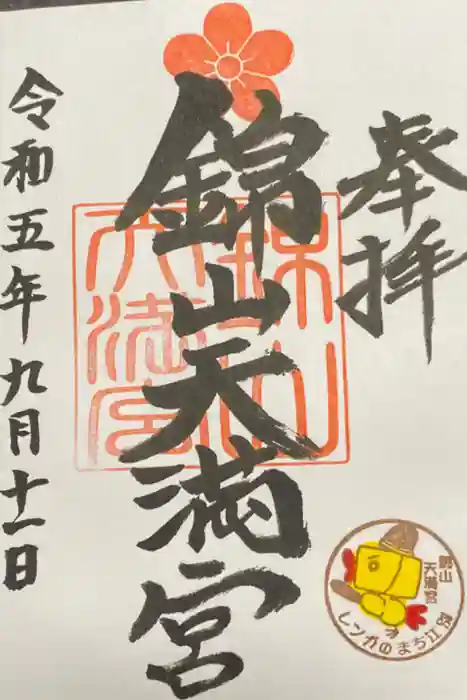 奉拝
錦山天満宮
錦山
天満宮
令和五年九月十一日
錦山
天満宮
レンガのまち江別